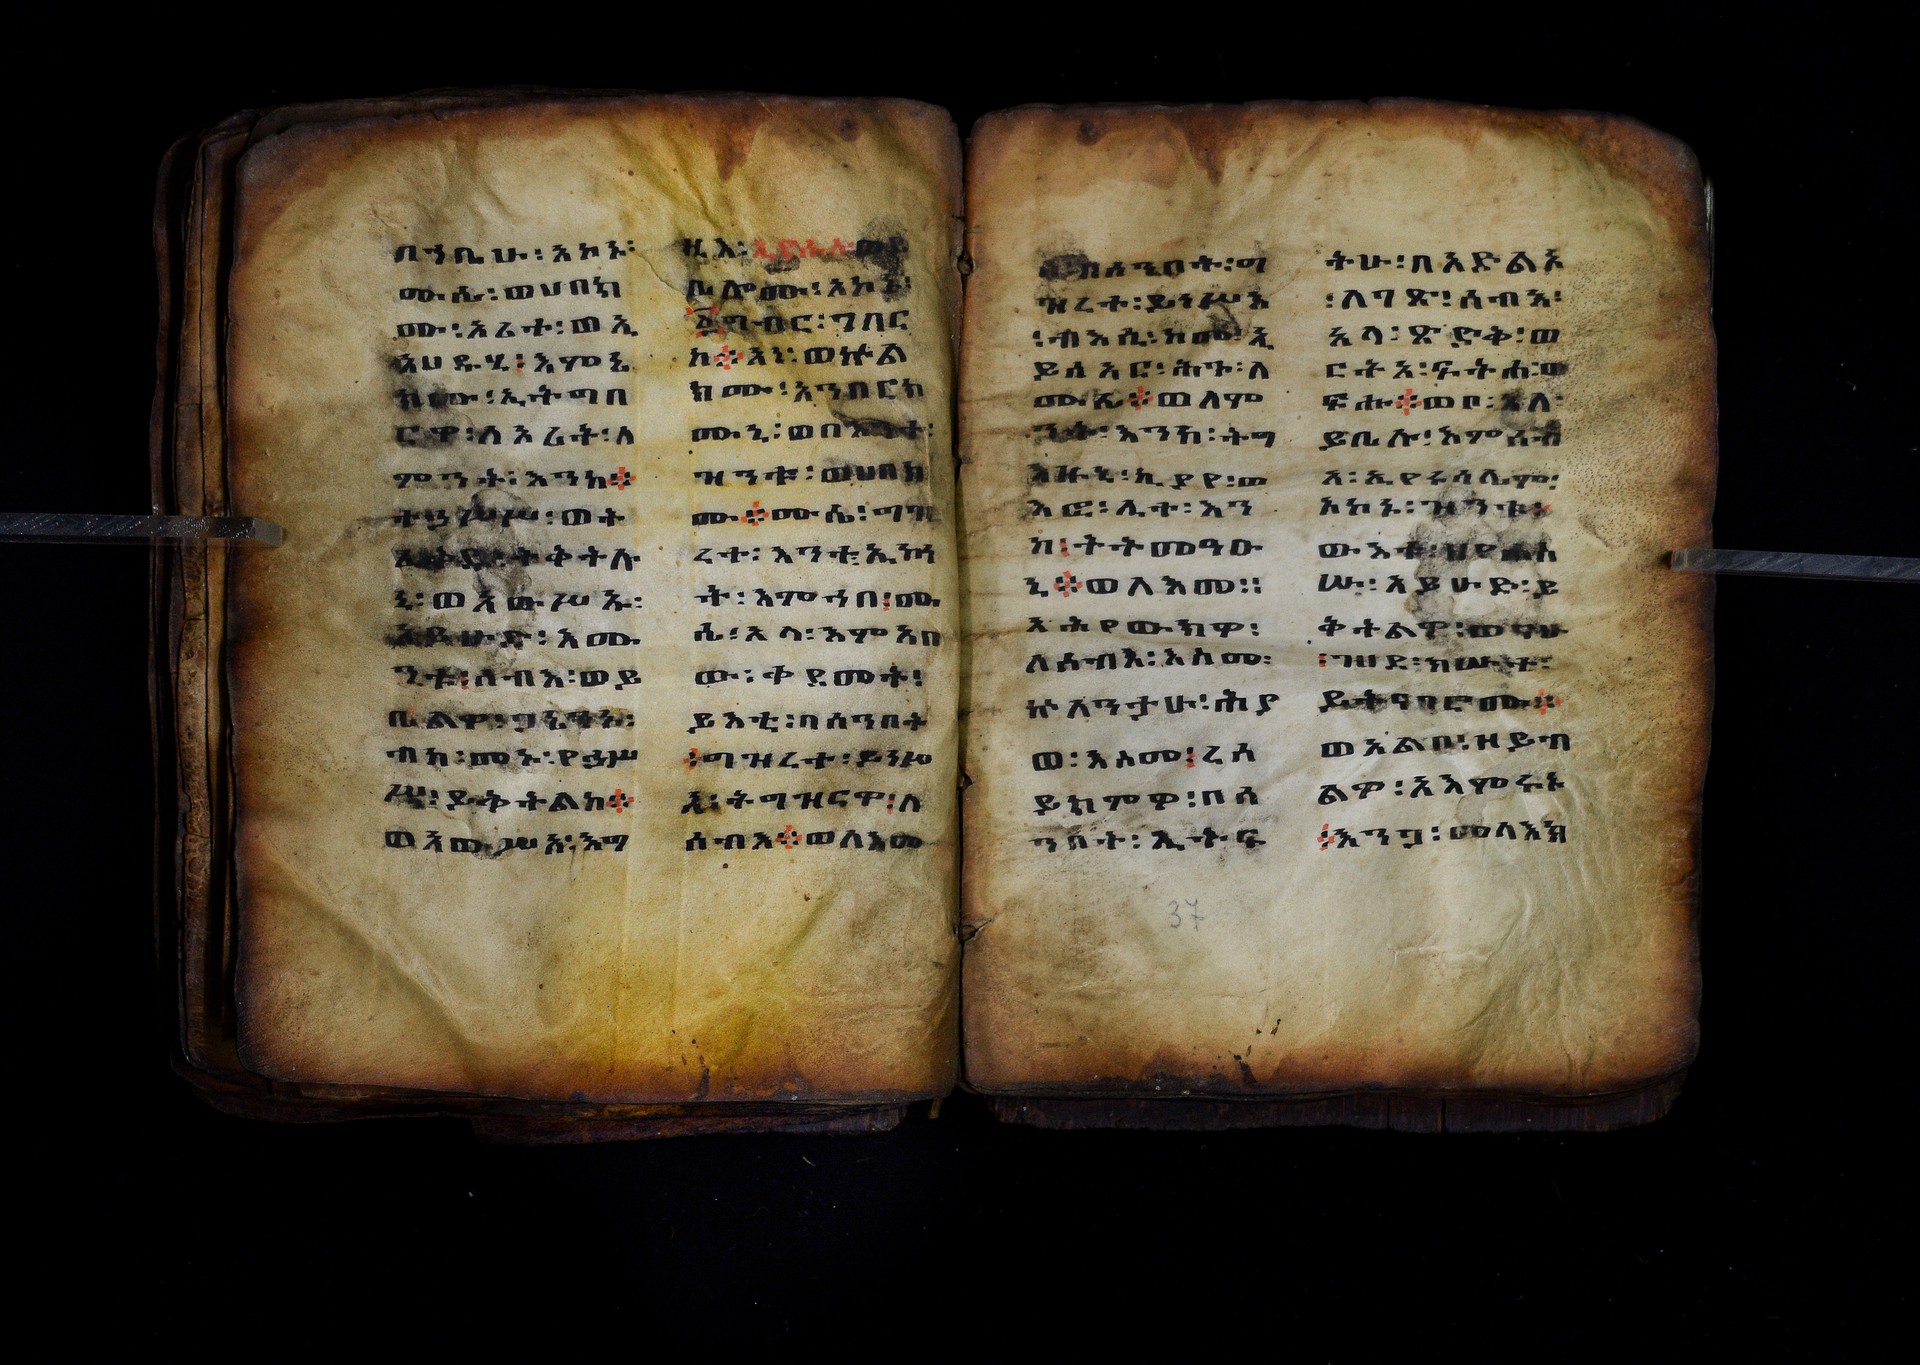 በኀቤሁ፡አኮኑ፡
ሙሴ፡ወሀበክ
ሙ፡ኦሪተ፡ወኢ
አሀዱሂ፡እምኔ
ክሙ፡ኢትግበ
ርዋ፡ለኦሪት፡ለ
ምንት፡እንከ፨
ተኃሥሡ፡ወት
ፈቅዱ፡ትቅትሉ
ኒ፡ወአውሥኡ፡
አይሁድ፡እሙ
ንቱ፡ሰብእ፡ወይ
ቤልዎ፡ጋኔንኑ፡
ብከ፡መኑ፡የኃሥ
ሥ፡ይቅትልከ፨
ወአውሥአ፡እግ
ዚእ፡ኢየሱስ፡ወይ
ቤሎሙ፡አኮኑ፡
፩ግብር፡ገበር
ኩ፨አነ፡ወኵል
ክሙ፡አንከርክ
ሙኒ፡ወበእንተ፡
ዝንቱ፡ወሀበክ
ሙ፨ሙሴ፡ግዝ
ረተ፡እንተ፡ኢኮነ
ት፡እምኀበ፡ሙ
ሴ፡አላ፡እምአበ
ው፡ቀደመት፡
ይእቲ፡በሰንበት
፡ግዝረተ፡ይነሥ
እ፡ትግዝርዎ፡ለ
ሰብእ፨ወለእመ
በሰንበት፡ግ
ዝረተ፡ይነሥእ
፡ብእሲ፡ከመ፡ኢ
ይሰአር፡ሕጉ፡ለ
ሙሴ፨ወለም
ንት፡እንከ፡ትግ
ኪያየ፡ወ
ሊተ፡እን
ከ፡ትትመዓዑ
ኒ፨ወለእመ፡፡
አሕየውክዎ፡
ለሰብእ፡እስመ፡
ኵለንታሁ፡ሕያ
ወ፡እስመ፡ረሰ
ይክምዎ፡በሰ
ንበት፡ኢትፍ
ትሁ፡በአድልኦ
፡ለገጽ፡ሰብእ፡
አላ፡ጽድቅ፡ወ
ርትአ፡ፍትሐ፡ወ
ፍሑ፨ወቦ፡እለ፡
ይቤሉ፡እምሰብ
አ፡ኢየሩሳሌም፡
አኮኑ፡ዝንቱ፡
ውእቱ፡ዘየሐሰ
ሡ፡አይሁድ፡ይ
ቅተልዎ፡ወናሁ
፡ገሀደ፡ክሡተ፡
ይትናገሮሙ፨
ወአልቦ፡ዘይብ
ልዎ፡አእምሩኑ
፡እንጋ፡መላእክ
37